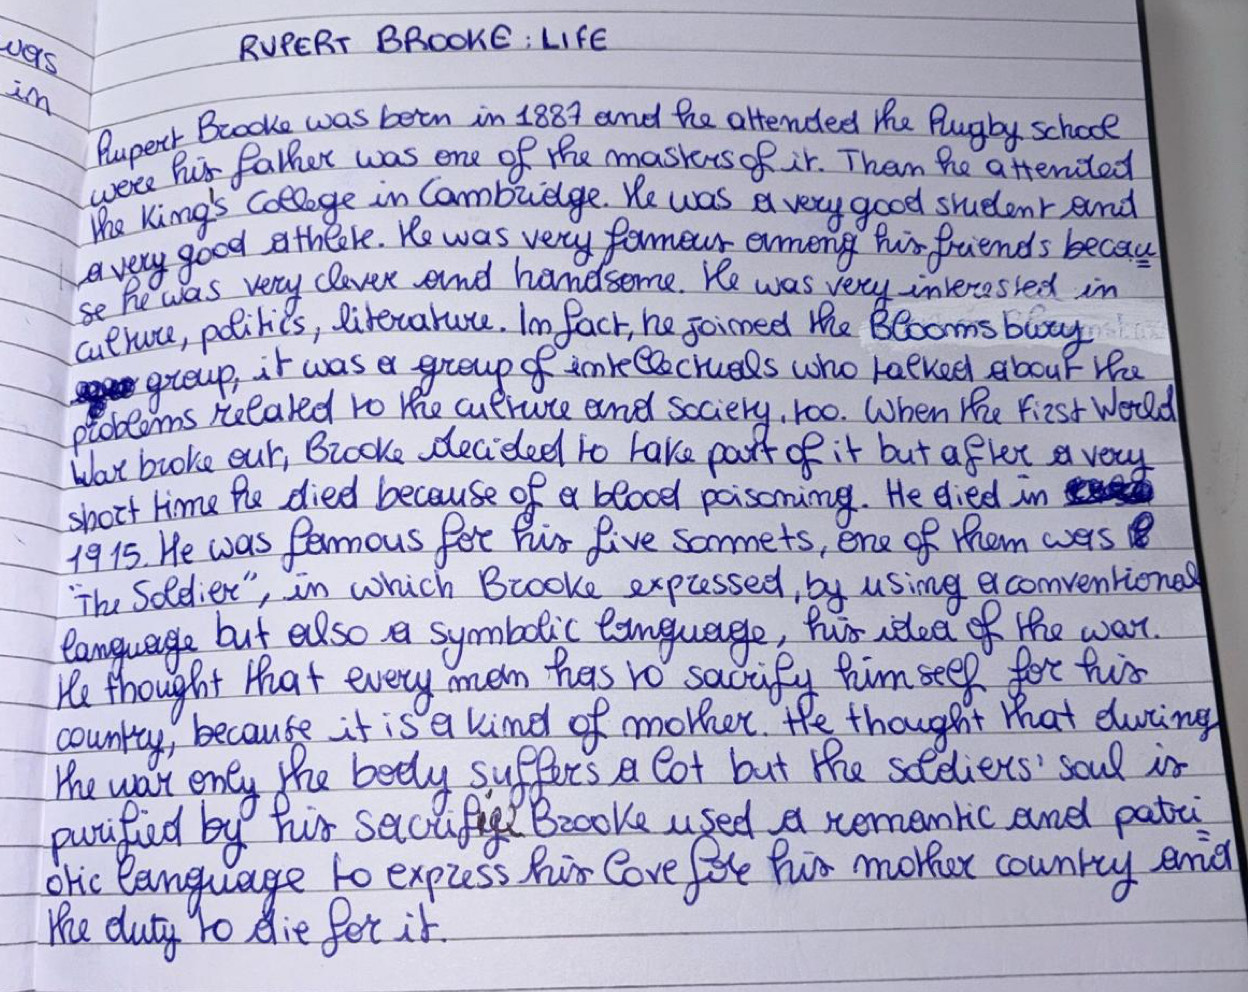 RUPERT BROOKE : LIFE
was
in
Rupert Brooke was born in 1887 and he attended the Rugby school
were his father was one of the masters of it. Than he attented
the King's College in Cambridge. He was a very good student and
a very good athlete. He was very famous among his friends becau
se he was very clever and handsome. He was very interested in
culture, politics, literature. In fact, he joined the Bloomsbury
group, it was a group of intellectuals who talked about the
problems related to the culture and society, too. When the First World
War broke out, Brooke decided to take part of it but after a very
short time he died because of a blood poisoning. He died in
1915. He was famous for his five sonnets, one of them was
"The Soldier", in which Brooke expressed, by using a conventional
language but also a symbolic language, his idea of the war.
He thought that every man has to sacrify himself for his
country, because it is a kind of mother. He thought that during
the war only the body suffers a lot but the soldiers' soul is
purified by his Brooke used a romantic and patri
otic language to express his love for his mother country and
the duty to die for it.